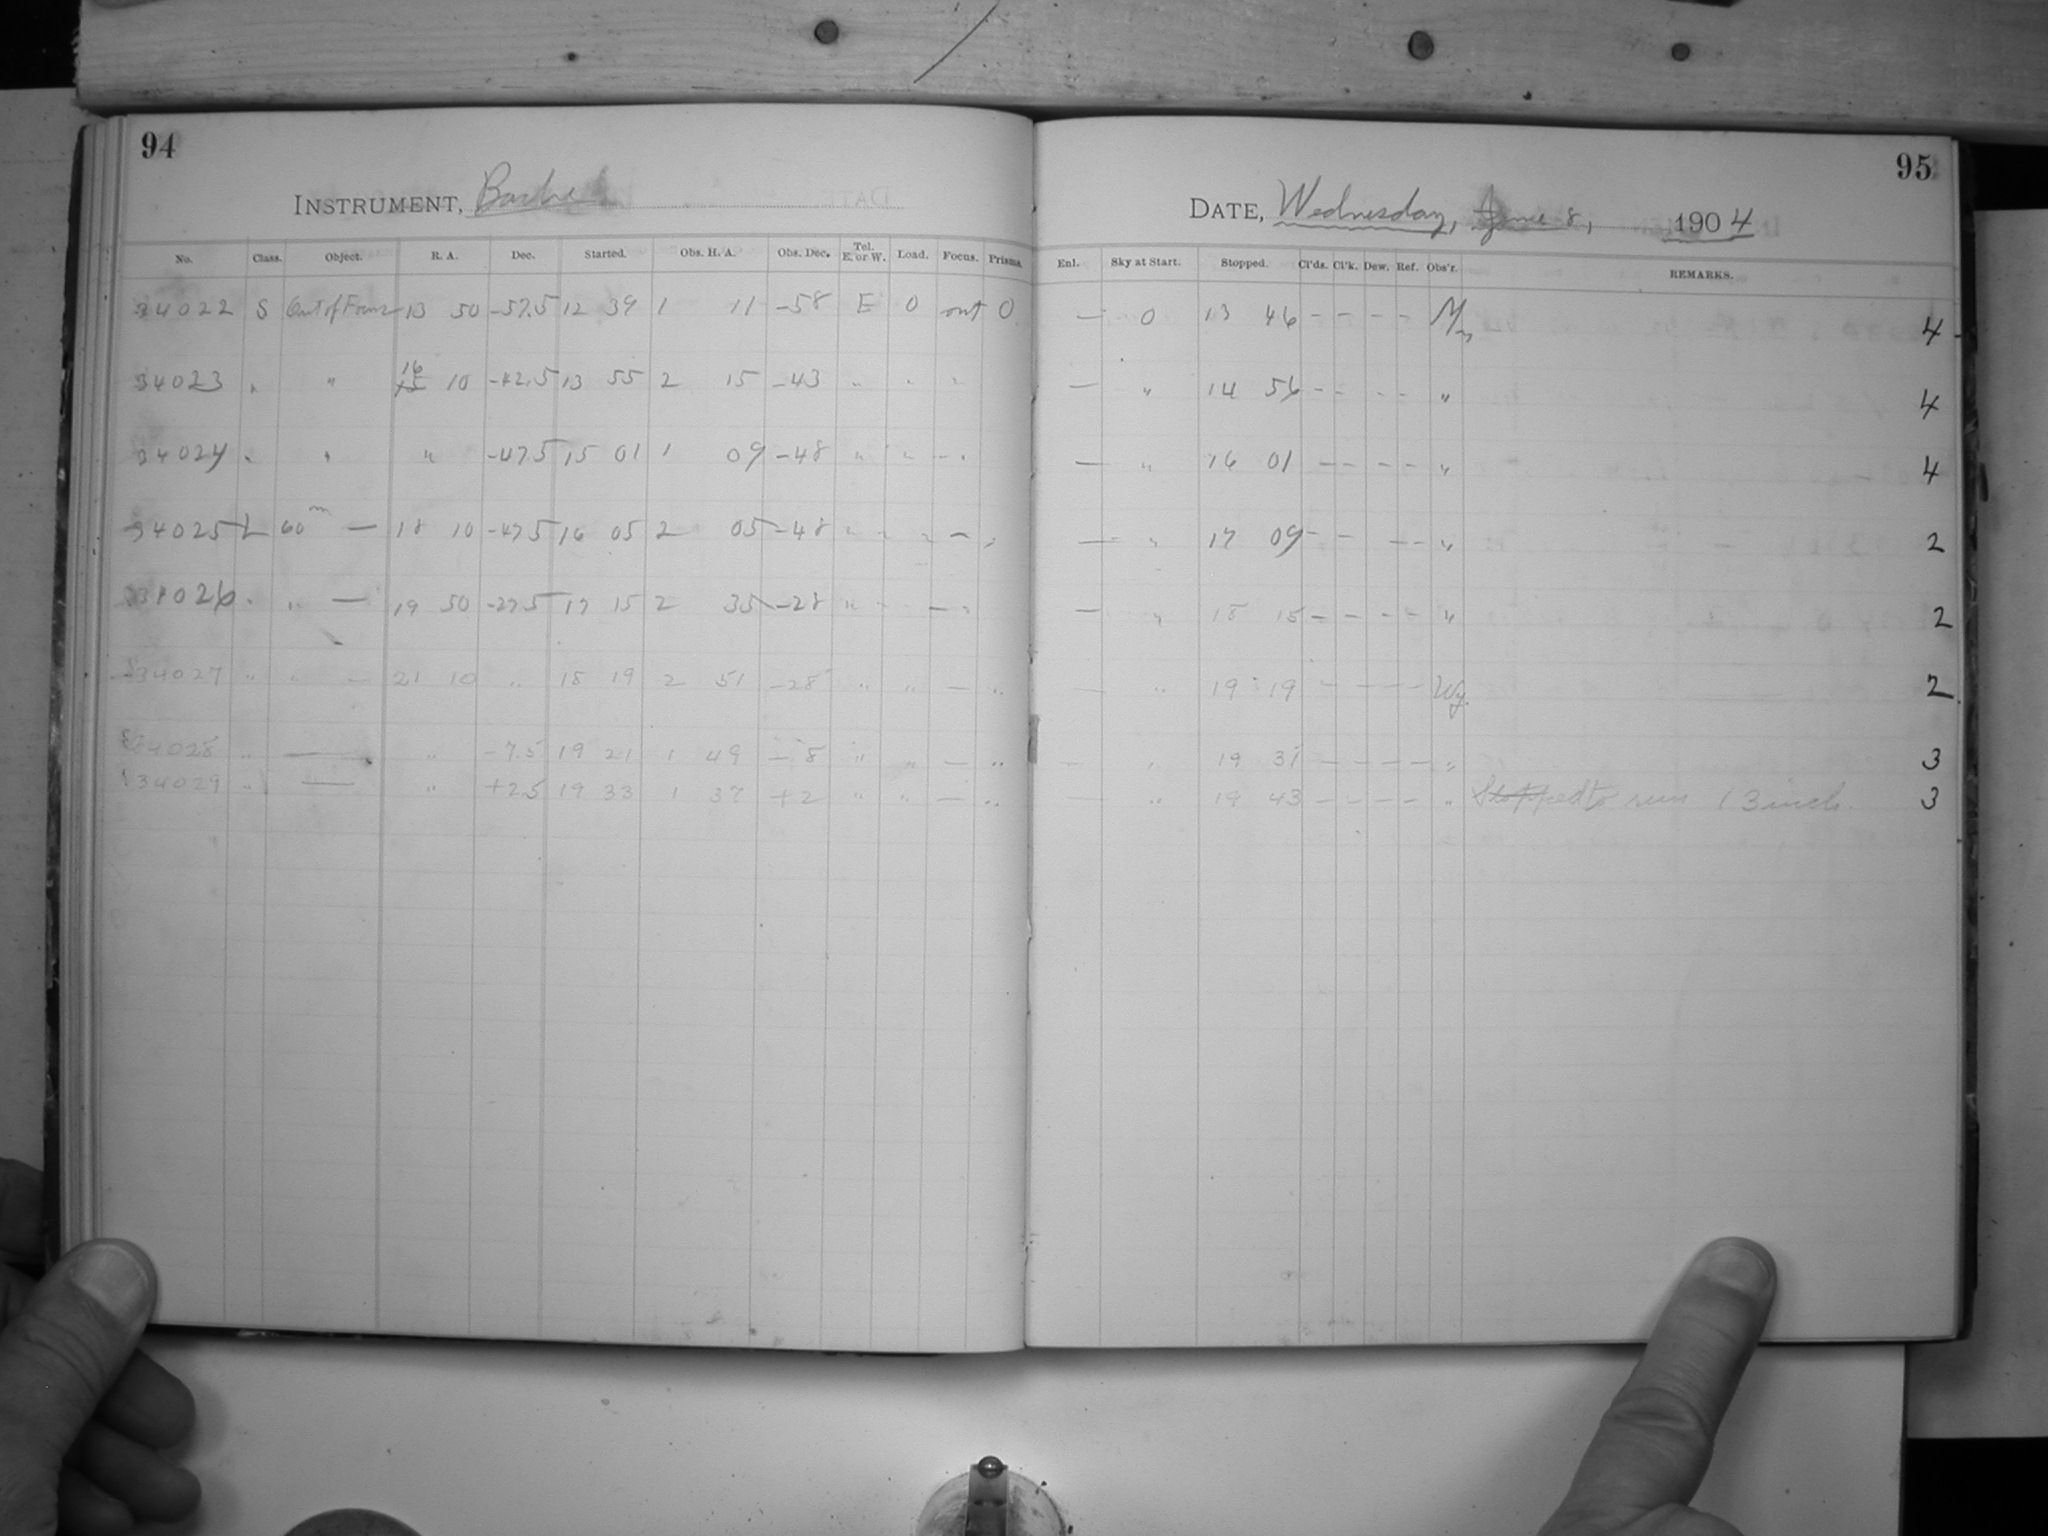 94
INSTRUMENT, Bache
No. Class. Object. R. A. Dec. Started. Obs. H. A. Obs. Dec. Tel. E. or W. Load. Focus. Prisms.
34022 S Out of Focus 13 50 -57.5 12 39 1 11 -58 E 0 out 0
34023 " " 16 15 10 -42.5 13 55 2 15 -43 " " "
34024 " " " -47.5 15 01 1 09 -48 " " — "
34025 L 60m — 18 10 -47.5 16 05 2 05 -48 " " " — "
34026 " " — 19 50 -27.5 17 15 2 35 -28 " " — "
34027 " " — 21 10 " 18 19 2 51 -28 " " — "
34028 " — " -7.5 19 21 1 49 -8 " " — "
34029 " — " +2.5 19 33 1 37 +2 " " — "
95
DATE, Wednesday, June 8, 1904
Enl. Sky at Start. Stopped. Cl'ds. Cl'k. Dew. Ref. Obs'r. REMARKS.
— 0 13 46 – – – – 4
— " 14 56 – – – – " 4
— " 16 01 – – – – " 4
— " 17 09 – – – – " 2
— " 18 15 – – – – " 2
— " 19 19 – – – – Wy. 2
— " 19 31 – – – – " 3
— " 19 43 – – – – " Stopped to run 13 inch. 3